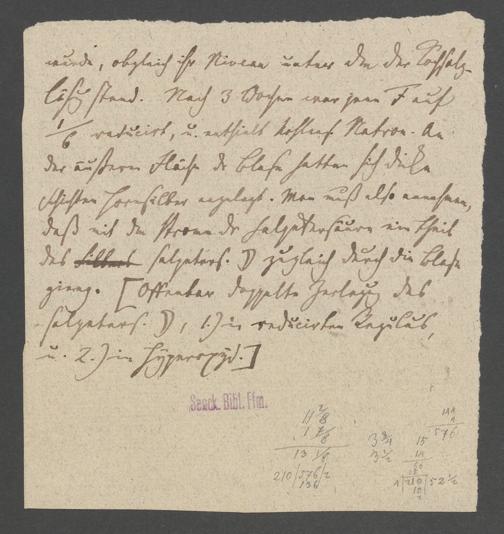 wurde, obgleich ihr Niveau unter dem der Kochsalz-
lösg stand. Nach 3 Wochen war jene F auf
1/6 reducirt, u. enthielt kohlens Natron. An
der äußern Fläche der Blase hatten sich dicke
Schichten Hornsilber angelegt. Man muß also annehmen,
daß mit dem Strome der Salpetersäure ein Theil
des Silbers salpeters. ☽ zugleich durch die Blase
gieng. [Offenbar doppelte Zerlegg des
salpeters. ☽, 1.) in reducirten Regulus,
u. 2.) in Hyperoxyd.]
Senck. Bibl. Ffm.
11 2/8
1 7/8
13 1/8
210/576/2
3 3/4
3 1/2
15
14
60
210
52 1/2
576